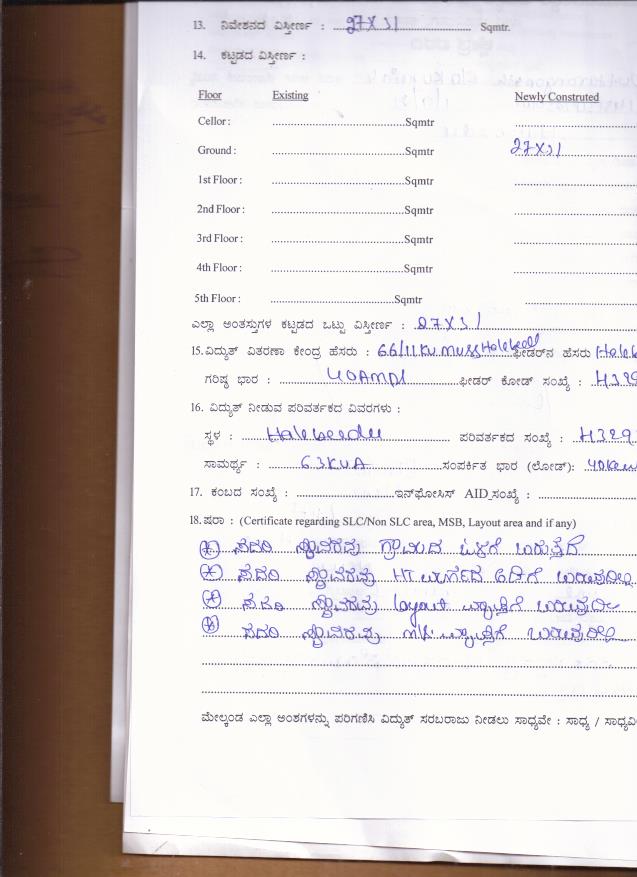 13. ನಿವೇಶನದ ವಿಸ್ತೀರ್ಣ : 27X31 Sqmtr.
14. ಕಟ್ಟಡದ ವಿಸ್ತೀರ್ಣ :
Floor Existing Newly Construted
Cellor : Sqmtr
Ground : Sqmtr 27X31
1st Floor : Sqmtr
2nd Floor : Sqmtr
3rd Floor : Sqmtr
4th Floor : Sqmtr
5th Floor : Sqmtr
ಎಲ್ಲಾ ಅಂತಸ್ತುಗಳ ಕಟ್ಟಡದ ಒಟ್ಟು ವಿಸ್ತೀರ್ಣ : 27X31
15.ವಿದ್ಯುತ್ ವಿತರಣಾ ಕೇಂದ್ರ ಹೆಸರು : 66/11KV MUSS Halebeed ಫೀಡರ್‌ನ ಹೆಸರು
ಗರಿಷ್ಠ ಭಾರ : 40AMP ಫೀಡರ್ ಕೋಡ್ ಸಂಖ್ಯೆ : H329
16. ವಿದ್ಯುತ್ ನೀಡುವ ಪರಿವರ್ತಕದ ವಿವರಗಳು :
ಸ್ಥಳ : Halebeedu ಪರಿವರ್ತಕದ ಸಂಖ್ಯೆ : H329
ಸಾಮರ್ಥ್ಯ : 63KVA ಸಂಪರ್ಕಿತ ಭಾರ (ಲೋಡ್):
17. ಕಂಬದ ಸಂಖ್ಯೆ : ಇನ್‌ಫೋಸಿಸ್ AID ಸಂಖ್ಯೆ :
18.ಷರಾ : (Certificate regarding SLC/Non SLC area, MSB, Layout area and if any)
ಸದರಿ ಸ್ಥಾವರವು ಗ್ರಾಮದ ಒಳಗೆ ಬರುತ್ತದೆ
ಸದರಿ ಸ್ಥಾವರವು HT ಅಡಿಗೆ ಬರುವುದಿಲ್ಲ
ಸದರಿ ಸ್ಥಾವರವು layout ವ್ಯಾಪ್ತಿಗೆ ಬರುವುದಿಲ್ಲ
ಸದರಿ ಸ್ಥಾವರವು ವ್ಯಾಪ್ತಿಗೆ ಬರುವುದಿಲ್ಲ
ಮೇಲ್ಕಂಡ ಎಲ್ಲಾ ಅಂಶಗಳನ್ನು ಪರಿಗಣಿಸಿ ವಿದ್ಯುತ್ ಸರಬರಾಜು ನೀಡಲು ಸಾಧ್ಯವೇ : ಸಾಧ್ಯ /